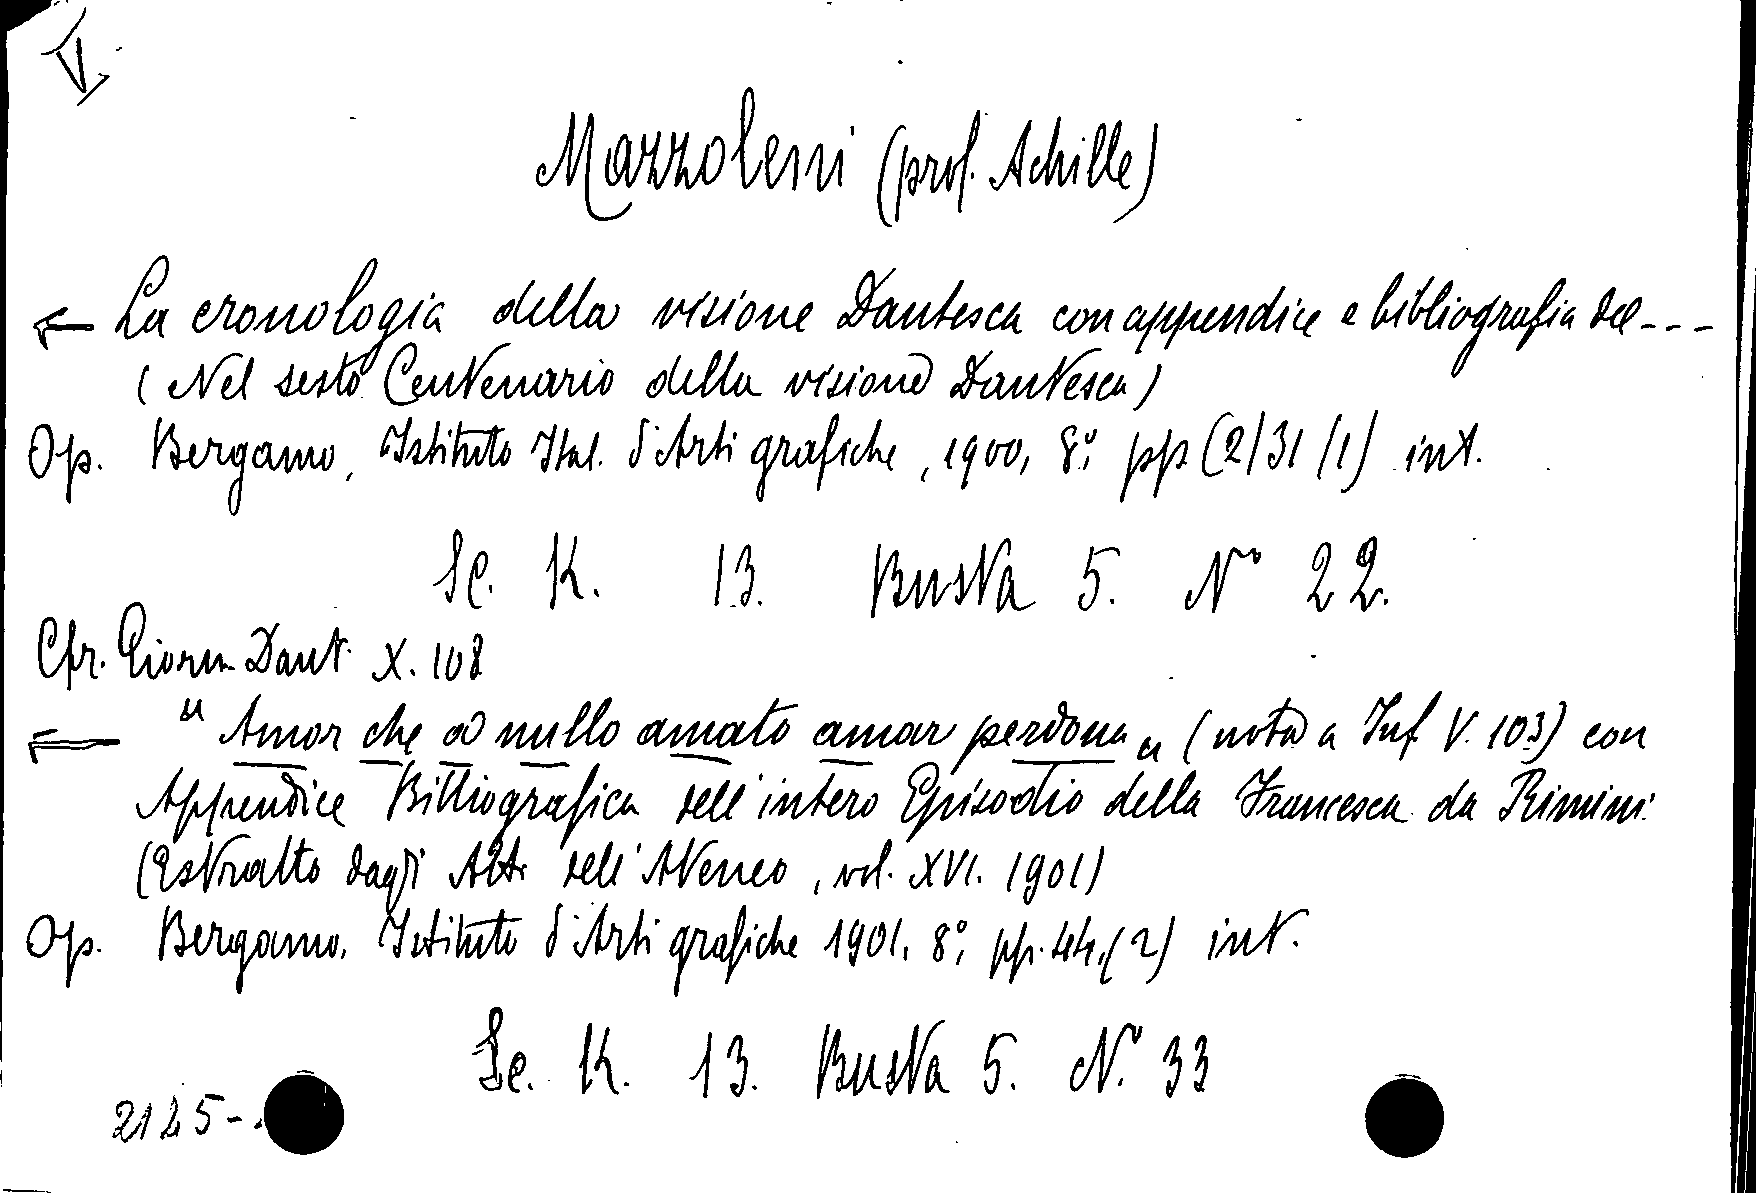 V.
Mazzoleni (prof. Achille)
← La cronologia della visione Dantesca con appendice e bibliografia del ---
(Nel sesto Centenario della visione Dantesca)
Op. Bergamo, Istituto Ital. d'Arti grafiche, 1900, 8°, pp (2/31/1) int.
Sc. K. 13. Busta 5. N° 22.
Cfr. Giorn. Dant. X. 108
← "Amor che a nullo amato amar perdona" (nota a Inf. V. 103) con
Appendice Bibliografica dell'intero Episodio della Francesca da Rimini.
(Estratto dagli Atti dell'Ateneo, vol. XVI. 1901)
Op. Bergamo. Istituto d'Arti grafiche 1901. 8°, pp. 44, (2) int.
Sc. K. 13. Busta 5. N° 33